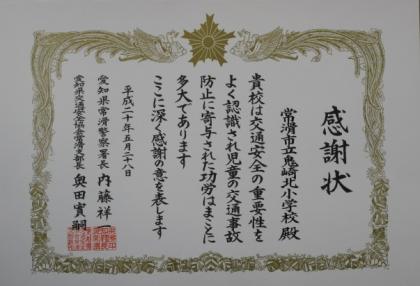 感謝状
常滑市立鬼崎北小学校 殿
貴校は交通安全の重要性を
よく認識され児童の交通事故
防止に寄与された功労はまことに
多大であります
ここに深く感謝の意を表します
平成二十年五月二八日
愛知県常滑警察署長 内藤祥一
愛知県交通安全協会常滑支部長 奥田實嗣